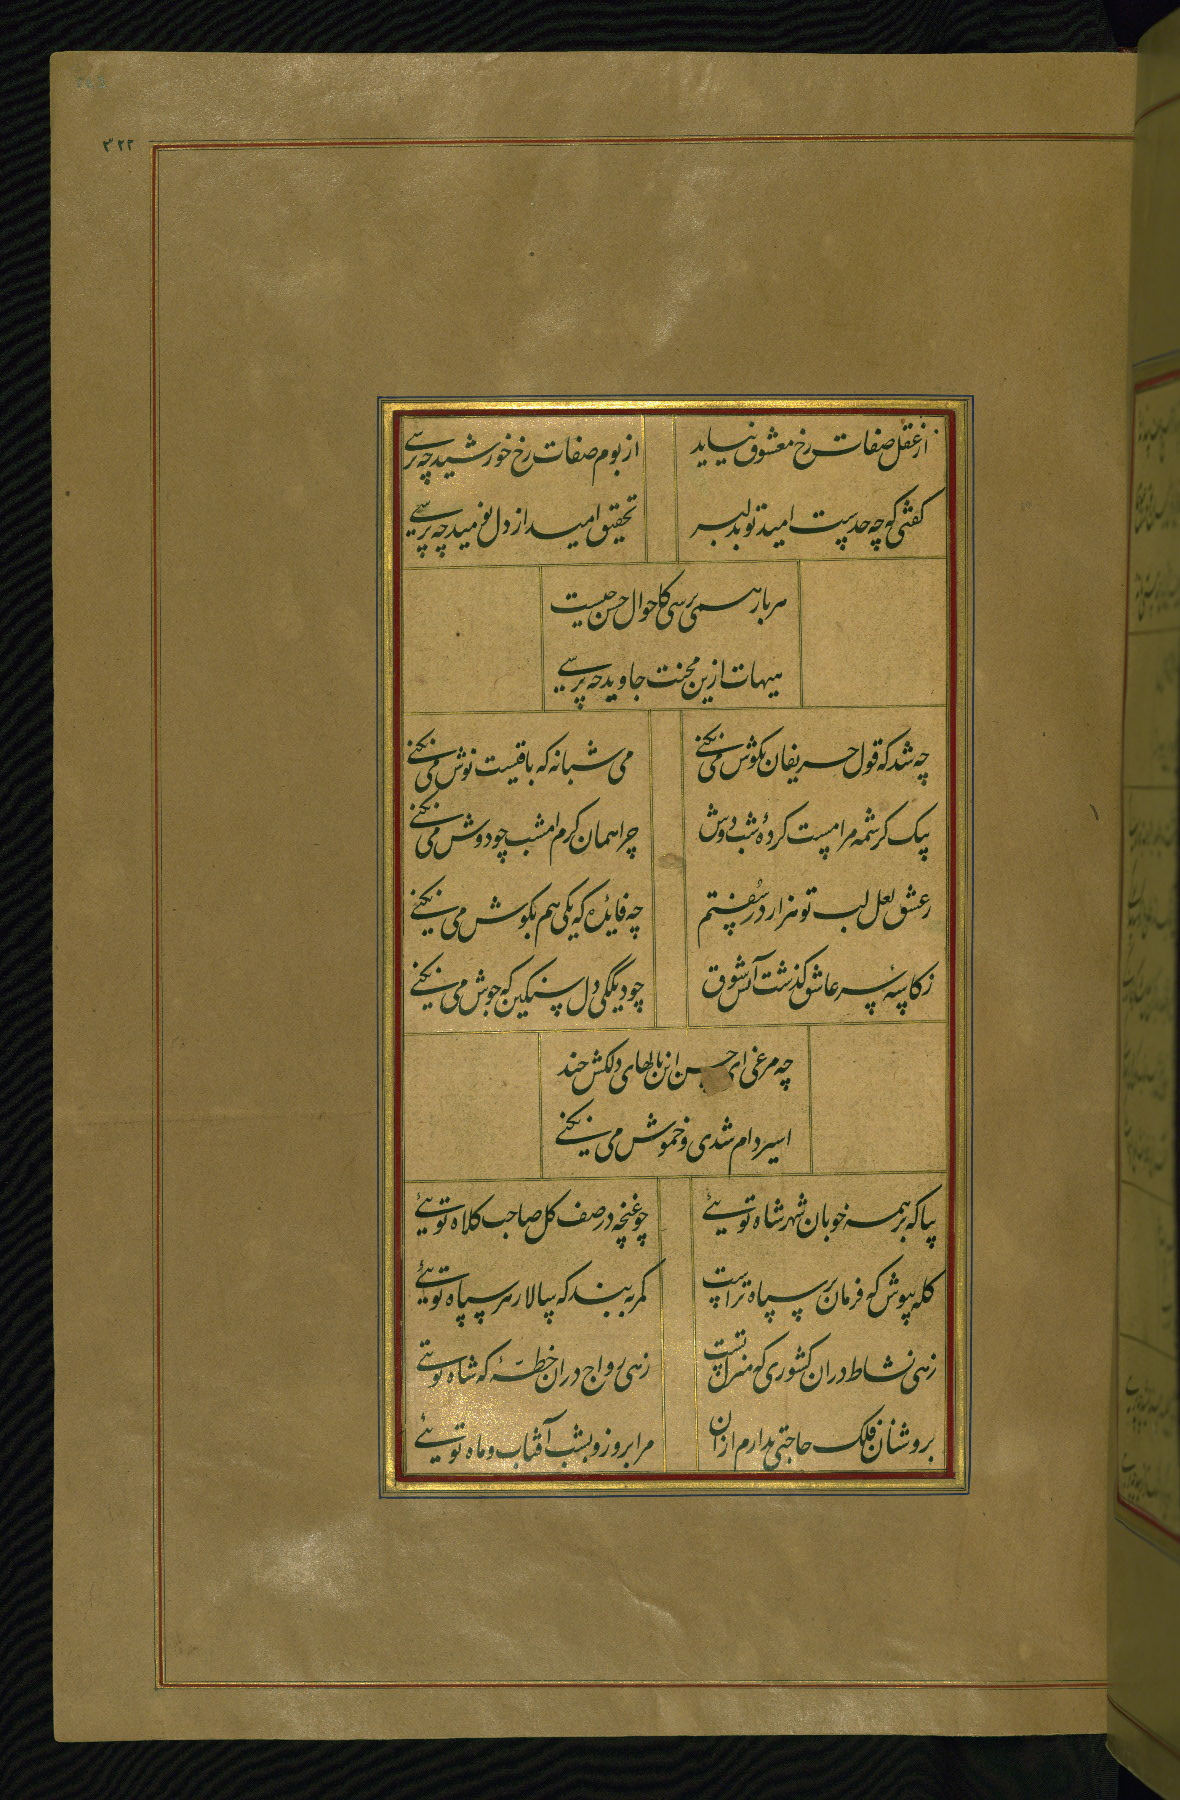 ۳۲۲
از عقل صفات رخ معشوق نیاید
از بوم صفات رخ خورشید چه پرسی
گفتی که چه حدیست امید تو بدلبر
تحقیق امید از دل نومید چه پرسی
هر بار همی پرسی کاحوال حسن چیست
هیهات ازین محنت جاوید چه پرسی
چه شد که قول حریفان بگوش می نکنی
می شبانه که باقیست نوش می نکنی
بیک کرشمه مرا مست کردهٔ شب دوش
چرا همان کرم امشب چو دوش می نکنی
ز عشق لعل لب تو هزار در سفتم
چه فایده که یکی هم بگوش می نکنی
ز کاسهٔ سر عاشق گذشت آتش شوق
چو دیگی دل سنگین که جوش می نکنی
چه مرغی ای حسن این نالهای دلکش چند
اسیر دام شدی و خموش می نکنی
بیا که بر همه خوبان شهر شاه توئی
چو غنچه در صف گل صاحب کلاه توئی
کله بپوش که فرمان بر سپاه تراست
کمر ببند که سالار هر سپاه توئی
زهی نشاط دران کشوری که منزل تست
زهی رواج دران خطهٔ که شاه توئی
بروشنان فلک حاجتی ندارم ازان
مرا بروز و بشب آفتاب و ماه توئی